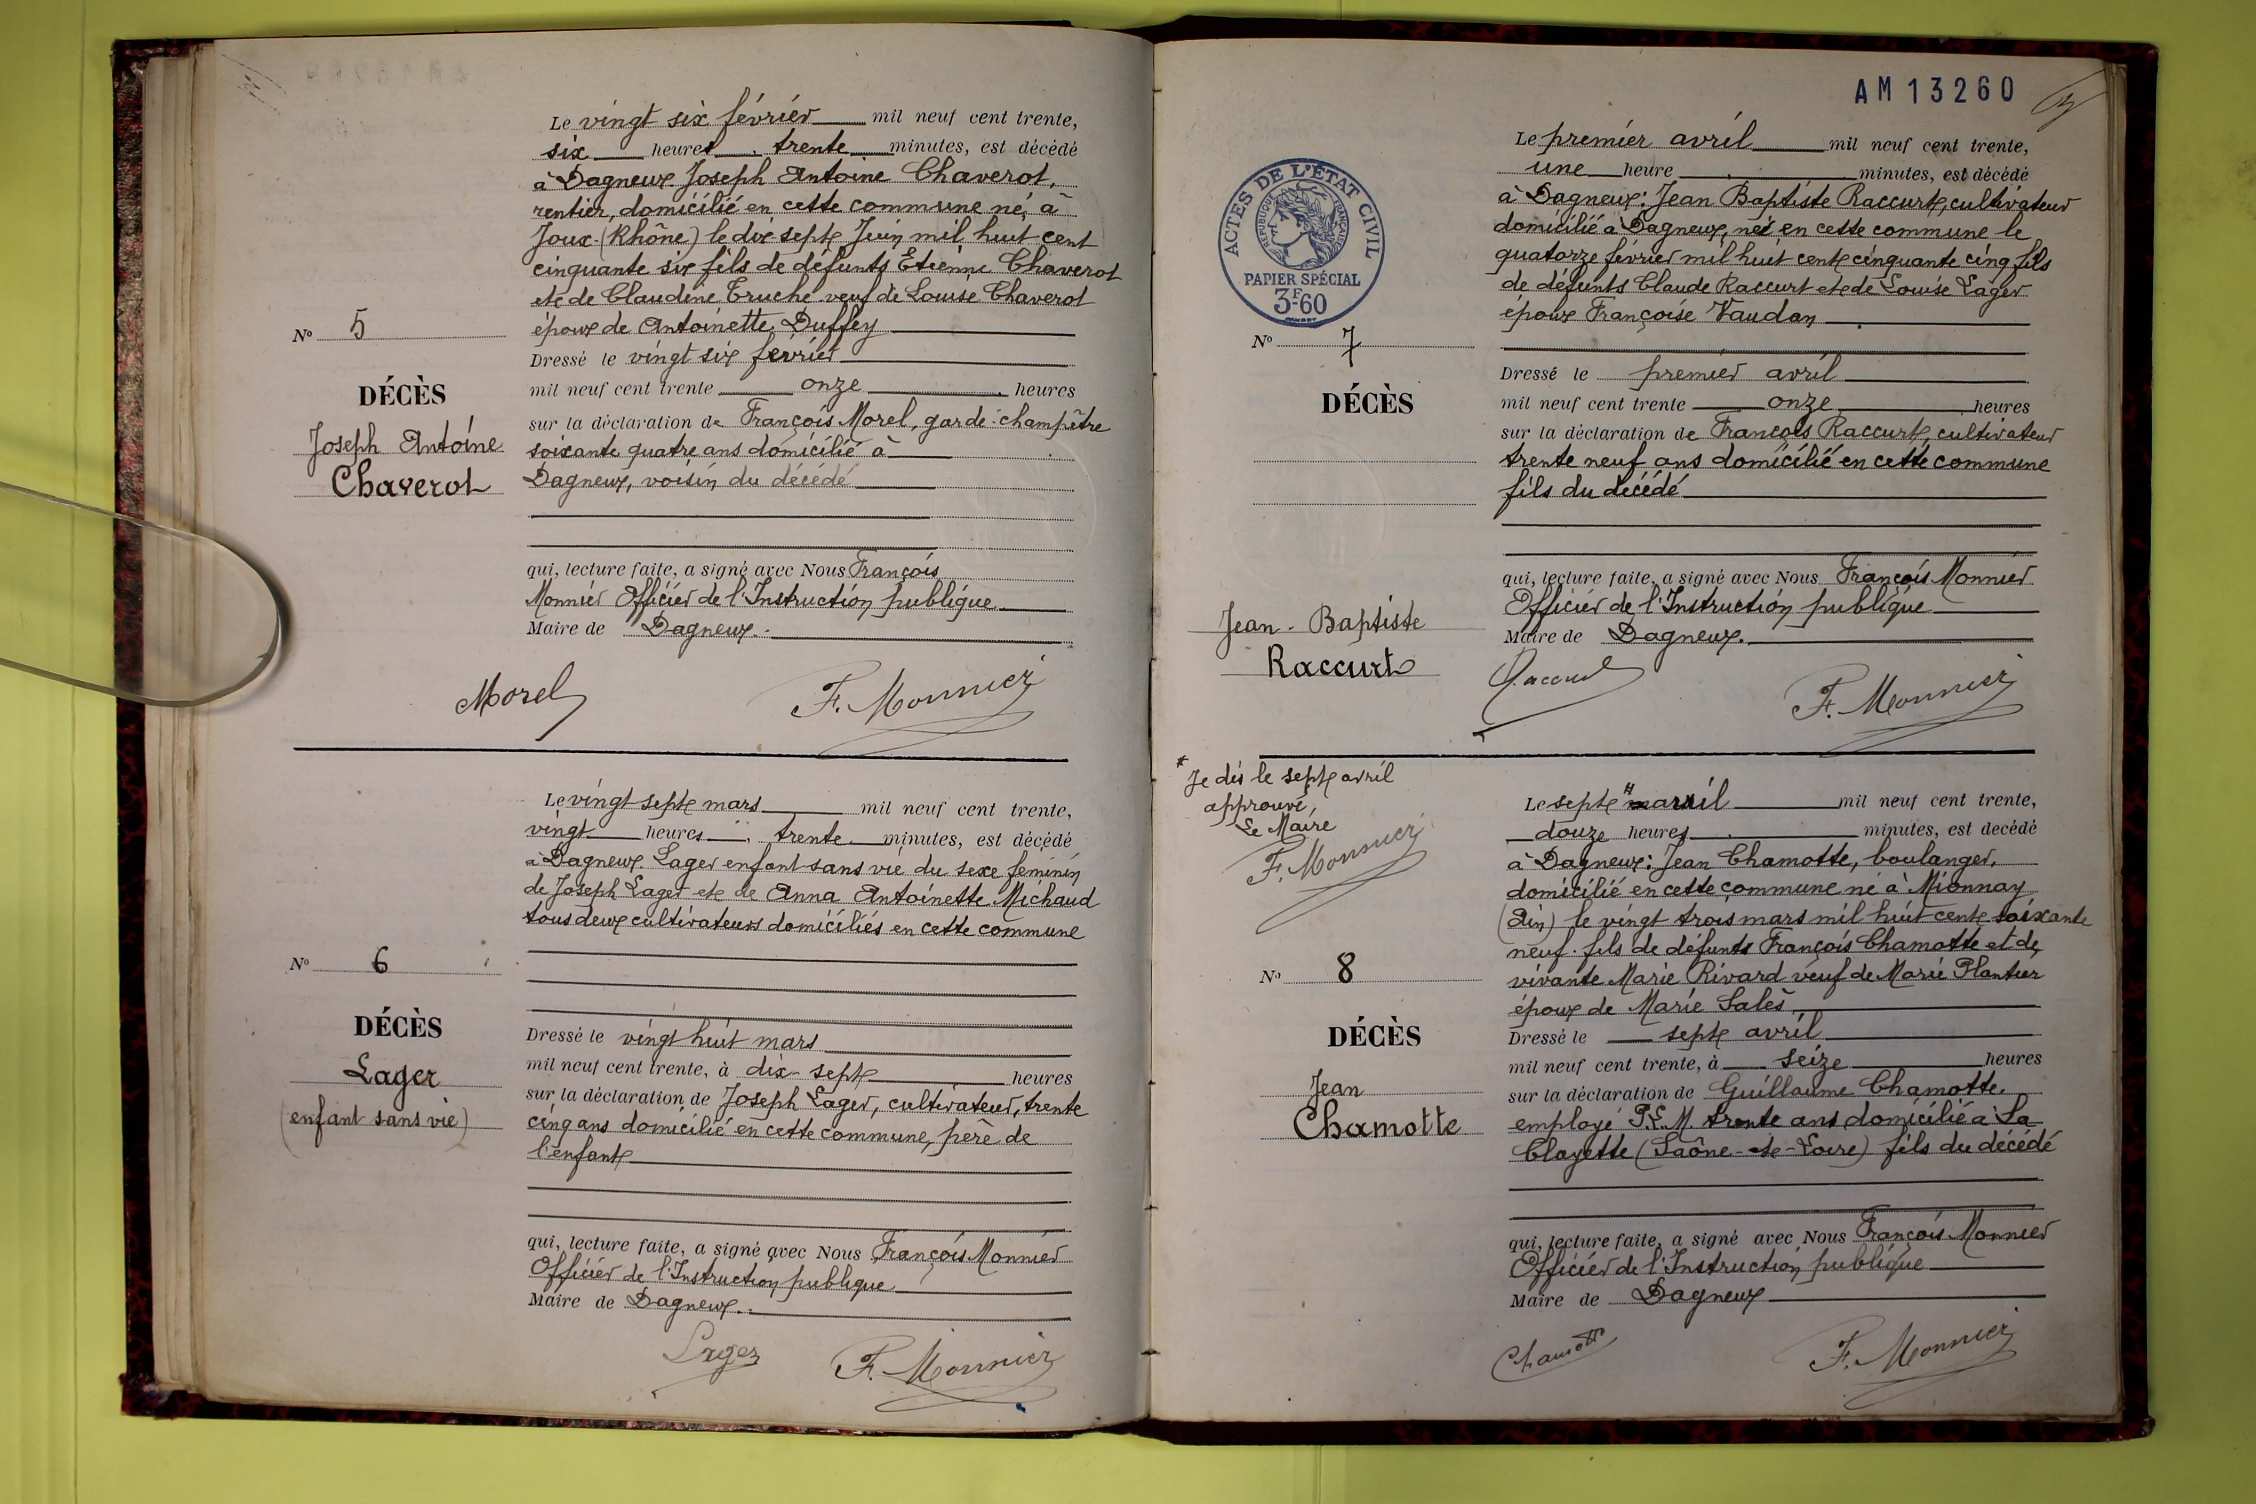 Le vingt six février mil neuf cent trente,
six heures trente minutes, est décédé
à Dagneux Joseph Antoine Chaverot,
rentier, domicilié en cette commune né, à
Joux (Rhône) le dix sept Juin mil huit cent
cinquante six fils de défunts Étienne Chaverot
et de Claudine Truche veuf de Louise Chaverot
époux de Antoinette Duffey
Nº 5
Dressé le vingt six février
mil neuf cent trente onze heures
DÉCÈS
sur la déclaration de François Morel, garde-champêtre
Joseph Antoine
soixante quatre ans domicilié à
Chaverot
Dagneux, voisin du décédé
qui, lecture faite, a signé avec Nous François
Monnier Officier de l'Instruction publique
Maire de Dagneux.
Morel F. Monnier
Le vingt sept mars mil neuf cent trente,
vingt heures trente minutes, est décédé
à Dagneux Lager enfant sans vie du sexe féminin
de Joseph Lager et de Anna Antoinette Michaud
tous deux cultivateurs domiciliés en cette commune
Nº 6
DÉCÈS
Dressé le vingt huit mars
mil neuf cent trente, à dix-sept heures
Lager
sur la déclaration de Joseph Lager, cultivateur, trente
(enfant sans vie)
cinq ans domicilié en cette commune, père de
l'enfant
qui, lecture faite, a signé avec Nous François Monnier
Officier de l'Instruction publique
Maire de Dagneux.
Lager F. Monnier
AM 13260
Le premier avril mil neuf cent trente,
une heure minutes, est décédé
à Dagneux: Jean Baptiste Raccurt, cultivateur
domicilié à Dagneux, né en cette commune le
quatorze février mil huit cent cinquante cinq fils
de défunts Claude Raccurt et de Louise Lager
époux Françoise Vaudan
ACTES DE L'ÉTAT CIVIL
RÉPUBLIQUE FRANÇAISE
PAPIER SPÉCIAL
3F-60
Nº 7
Dressé le premier avril
DÉCÈS
mil neuf cent trente onze heures
sur la déclaration de François Raccurt, cultivateur
trente neuf ans domicilié en cette commune
fils du décédé
qui, lecture faite, a signé avec Nous François Monnier
Officier de l'Instruction publique
Jean-Baptiste
Maire de Dagneux.
Raccurt
Raccurt F. Monnier
* Je dis le sept avril
approuvé,
Le Maire
F. Monnier
Le sept avril mil neuf cent trente,
douze heures minutes, est decédé
à Dagneux: Jean Chamotte, boulanger,
domicilié en cette commune né à Mionnay
(Ain) le vingt trois mars mil huit cent soixante
neuf fils de défunts François Chamotte et de
vivante Marie Rivard veuf de Marie Plantier
époux de Marie Salès
Nº 8
DÉCÈS
Dressé le sept avril
mil neuf cent trente, à seize heures
Jean
sur la déclaration de Guillaume Chamotte,
Chamotte
employé P.L.M. trente ans domicilié à La
Clayette (Saône-et-Loire) fils du décédé
qui, lecture faite, a signé avec Nous François Monnier
Officier de l'Instruction publique
Maire de Dagneux
Chamotte F. Monnier